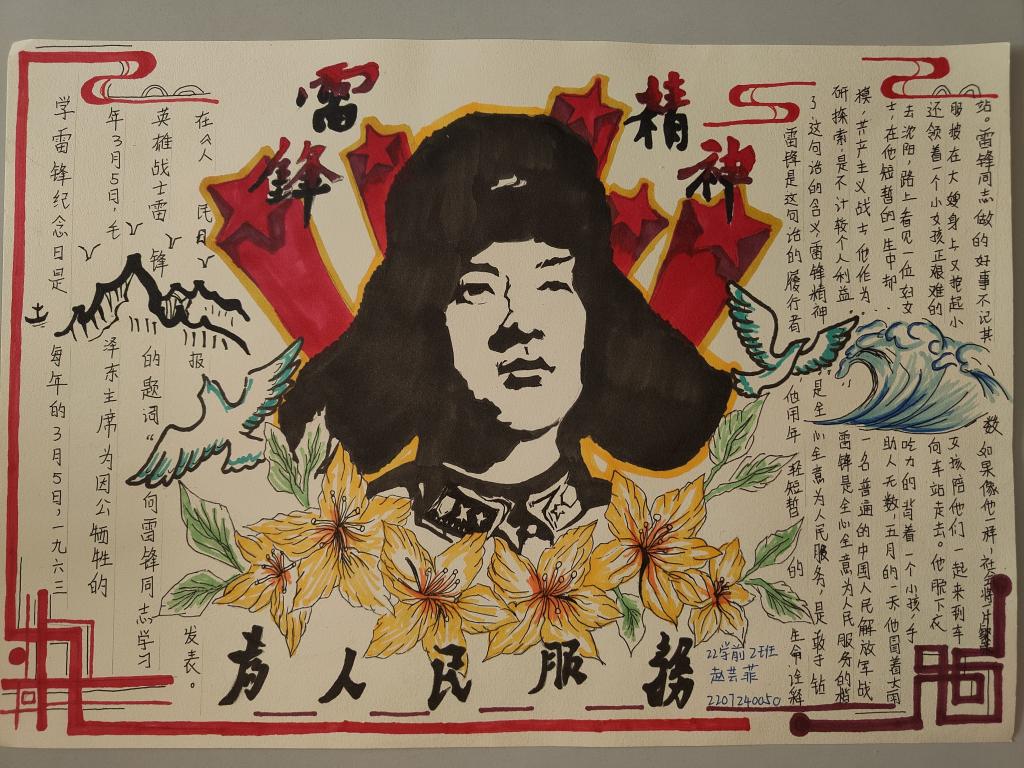 雷锋精神
学雷锋纪念日是每年的3月5日,一九六三
年3月5日,毛泽东主席为因公牺牲的
英雄战士雷锋的题词“向雷锋同志学习
在《人民日报发表。
雷锋是这句话的履行者,他用年轻短暂的生命诠释
了这句话的含义,雷锋精神,是全心全意为人民服务,是敢于钻
研探索,是不计较个人利益.”雷锋是全心全意为人民服务的楷
模,共产主义战士他作为一名普通的中国人民解放军战
士,在他短暂的一生中却助人无数,五月的一天,他冒着大雨
去沈阳,路上看见一位妇女吃力的背着一个小孩,手
还领着一个小女孩正艰难的向车站走去。他脱下衣
服披在大嫂身上又抱起小女孩陪他们一起来到车
站。雷锋同志做的好事不记其数如果像他一样,社会将片
為人民服務
22学前2班
赵芸菲
2207240050